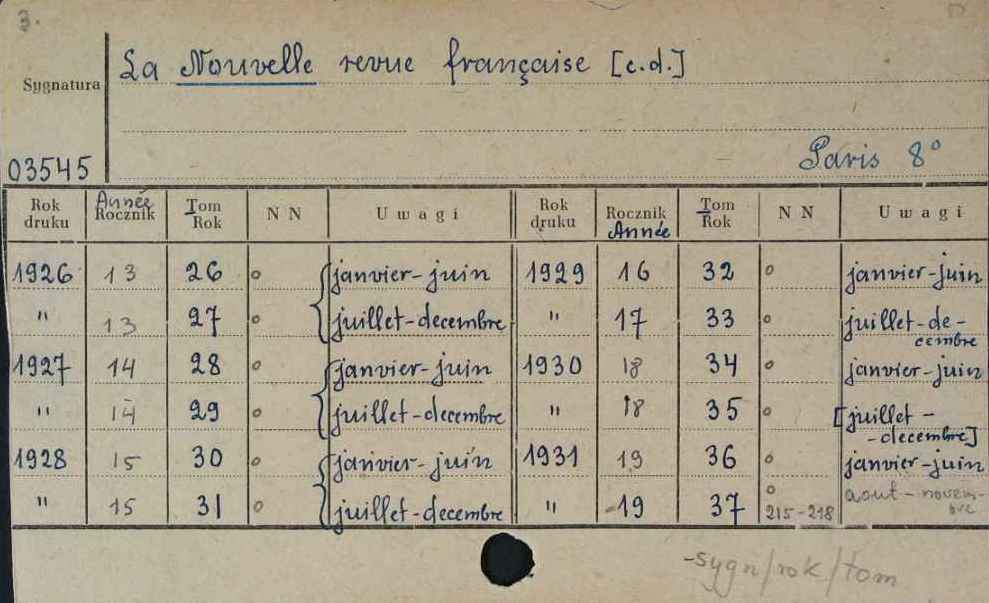 3.
La Nouvelle revue française [c.d.]
Sygnatura
03545
Paris 8°
Rok druku Année Rocznik Tom Rok N N Uwagi Rok druku Rocznik Année Tom Rok N N Uwagi
1926 13 26 o janvier-juin 1929 16 32 o janvier-juin
" 13 27 o juillet-decembre " 17 33 o juillet-de-
cembre
1927 14 28 o janvier-juin 1930 18 34 o janvier-juin
" 14 29 o juillet-decembre " 18 35 o [juillet-
-decembre]
1928 15 30 o janvier-juin 1931 19 36 o janvier-juin
" 15 31 o juillet-decembre " 19 37 o 215-218 aout-novem-
bre
-sygn/rok/tom